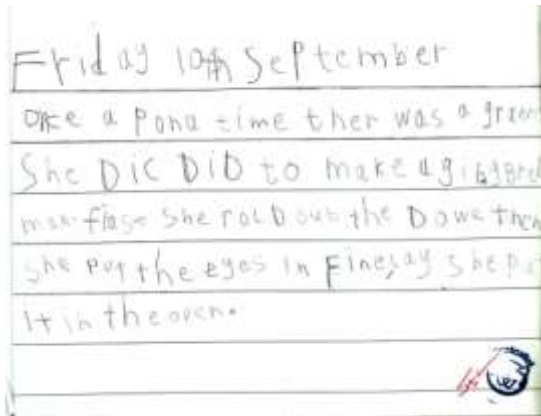 Friday 10th September
once a Pona time ther was a
She DiC DiD to make a gingbred
man fiast She rold out the Dowe then
she put the eyes in Finelay She
it in the oven.